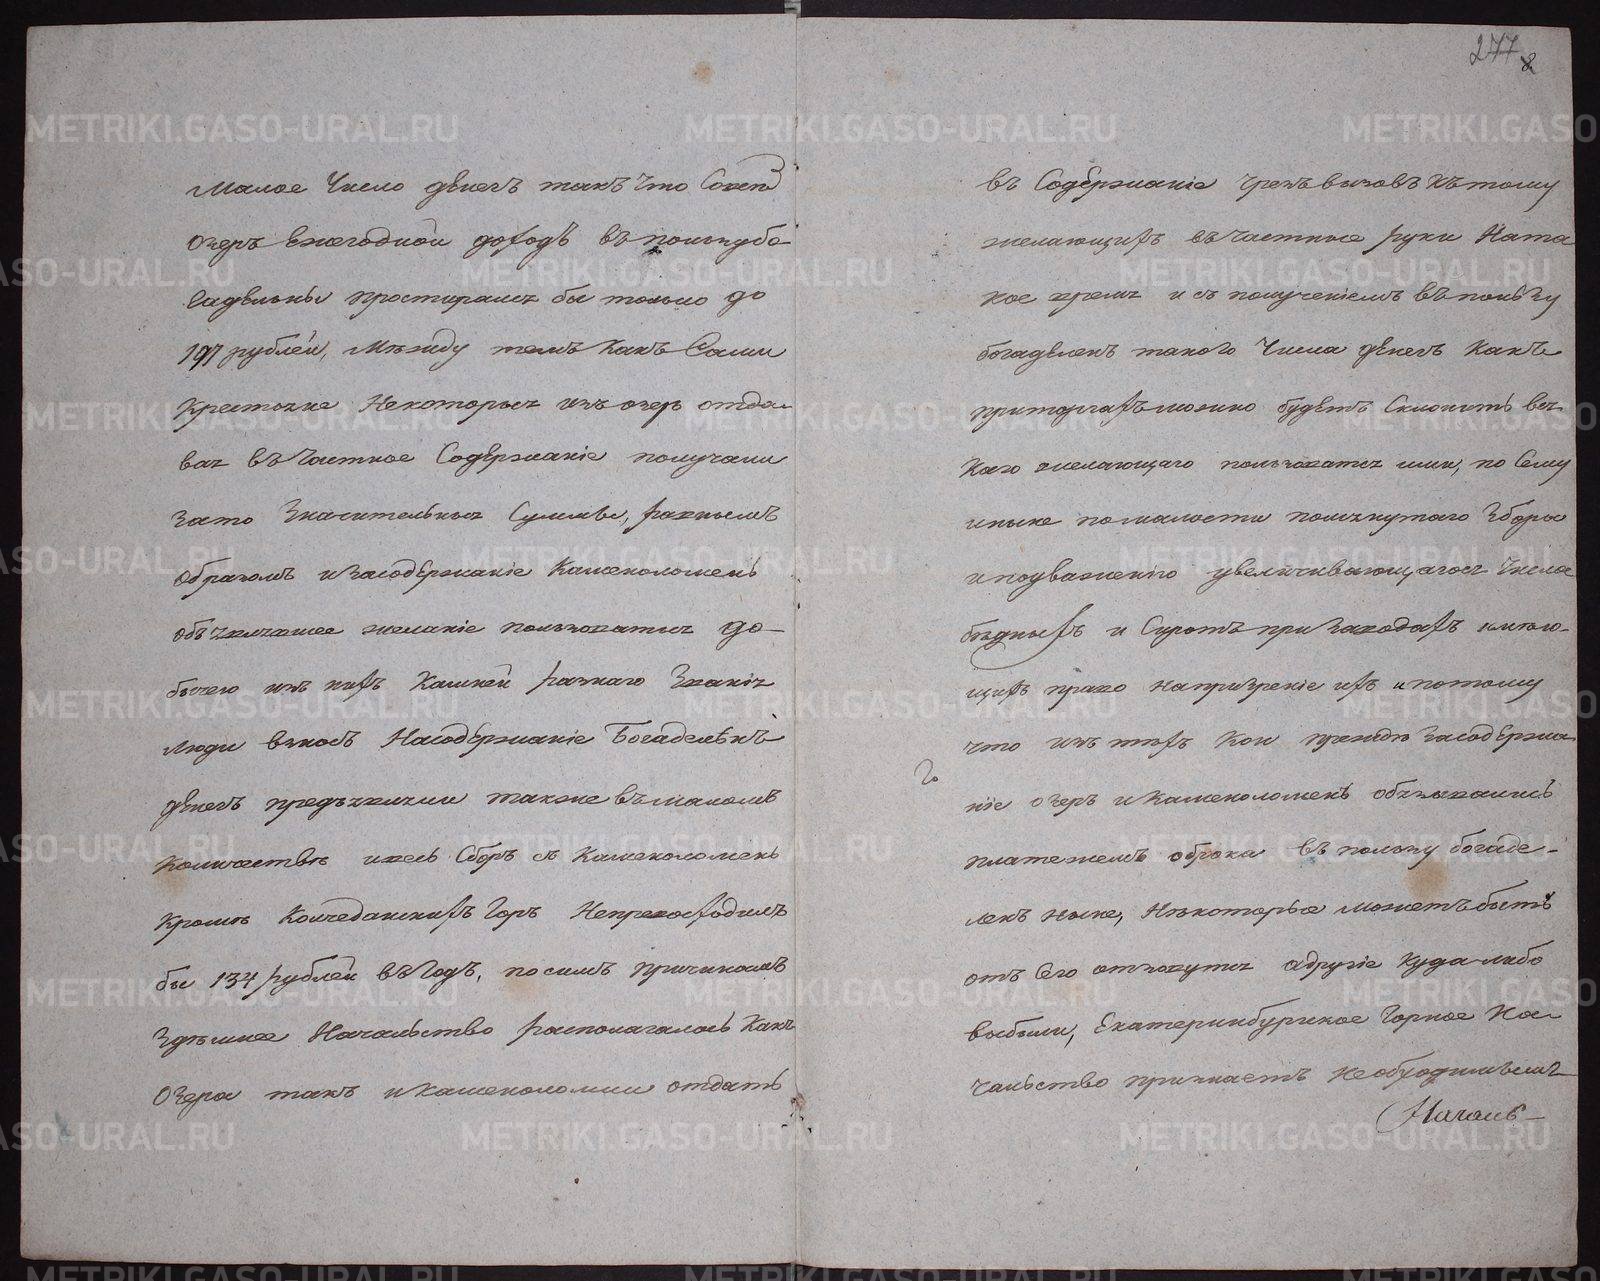 малое число денегъ такъ что со всехъ
озеръ ежегодной доходъ въ пользу бо
гадельны простирался бы только до
197 рублей, между темъ какъ сами
крестьяне некоторыя изъ озеръ отда
вая въ частное содержаніе получали
за то значительныя суммы, равнымъ
образомъ и за содержаніе каменоломень
объявлявшее желаніе пользоватися до-
бычею изъ нихъ камней разнаго званія
люди взносъ на содержаніе богадельнъ
денегъ предъявляли также въ маломъ
количестве и весь сборъ съ каменоломень
кроме Колчеданскихъ горъ не превосходилъ
бы 134 рублей въ годъ, по симъ причинамъ
здешнее начальство располагалось какъ
озера такъ и каменоломни отдать
277
въ содержаніе чрезъ вызовъ къ тому
желающихъ въ частные руки на та
кое время и съ полученіемъ въ пользу
богаделенъ такого числа денегъ какъ
при торгахъ можно будетъ склонить вся
каго желающаго пользоватися ими, по сему
и ныне по малости помянутаго збора
и по уваженію увеличивающагося числа
бедныхъ и сиротъ при заводахъ имею-
щихъ право на призреніе ихъ и потому
что изъ техъ кои прежде за содержа
ніе озеръ и каменоломень обязывались
платежемъ оброка въ пользу богаде-
ленъ ныне, некоторые можетъ быть
отъ сего отзовутся а другіе куда либо
выбыли, Екатеринбургское Горное На
чальство признаетъ необходимымъ
Началь-
METRIKI.GASO-URAL.RU